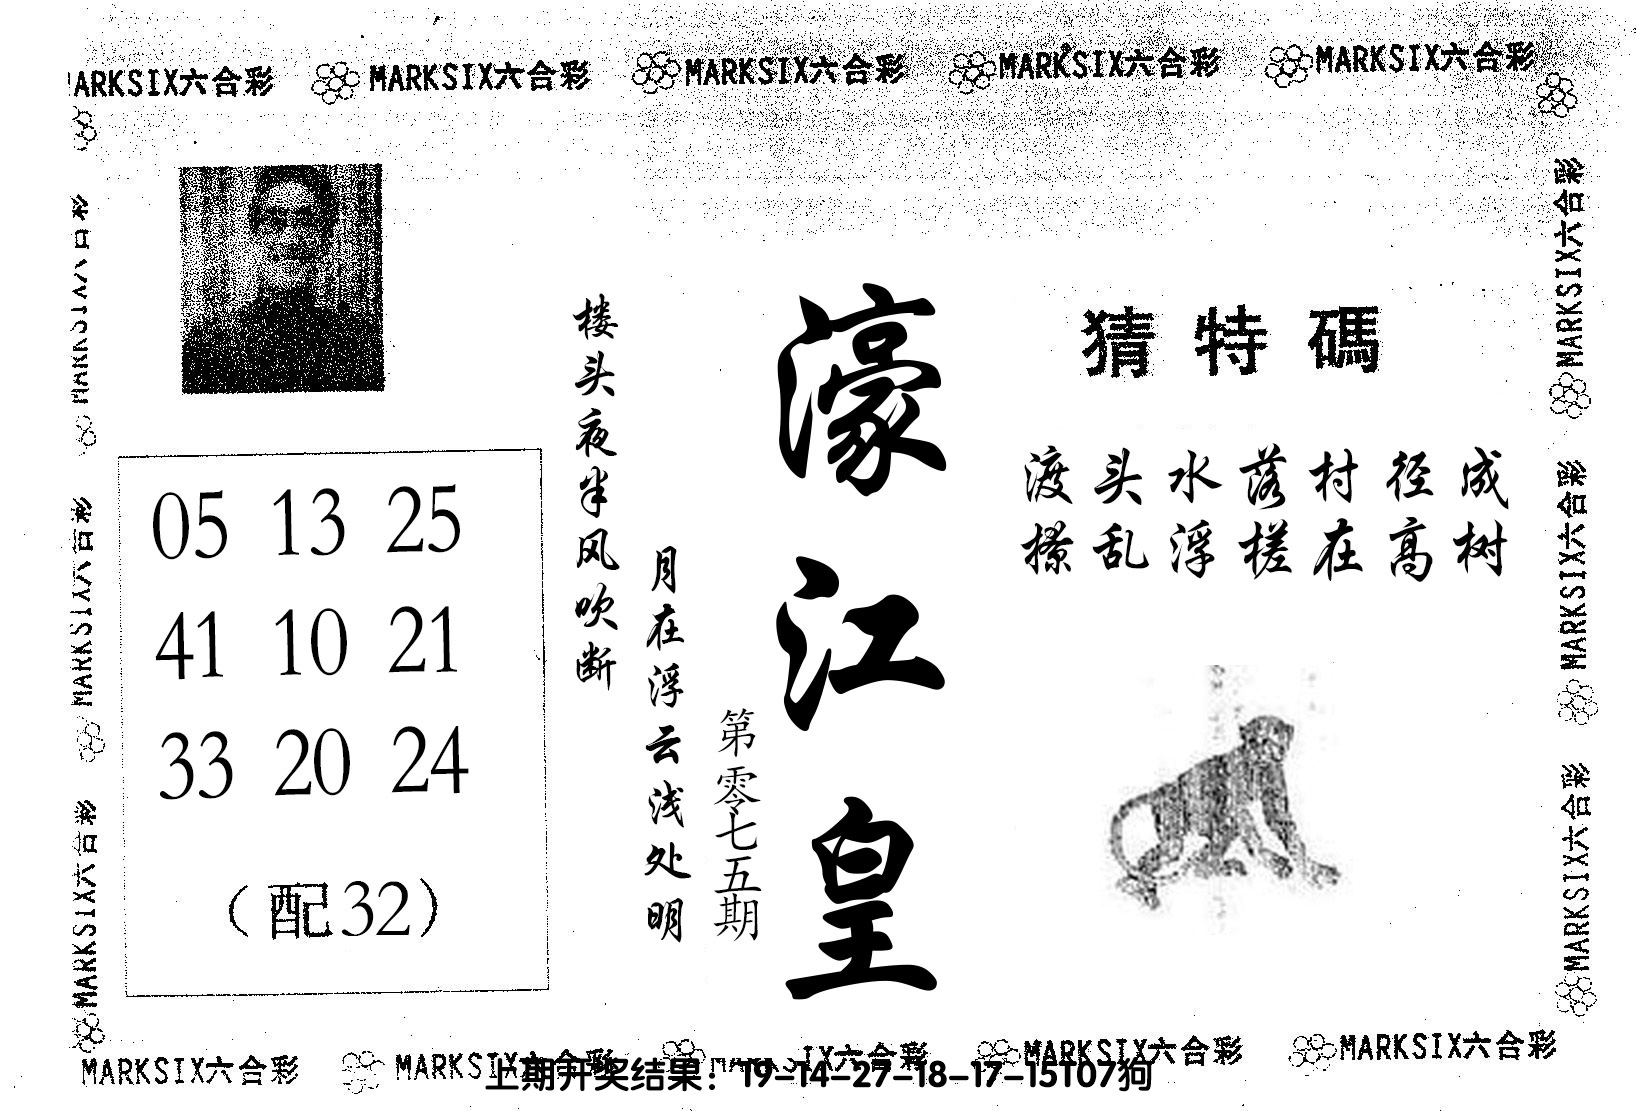 MARKSIX六合彩 MARKSIX六合彩 MARKSIX六合彩 MARKSIX六合彩 MARKSIX六合彩
MARKSIX六合彩
MARKSIX六合彩
MARKSIX六合彩
05 13 25
41 10 21
33 20 24
（配32）
楼头夜半风吹断
月在浮云浅处明
第零七五期
濠江皇
猜特碼
渡头水落村径成
撩乱浮槎在高树
MARKSIX六合彩
MARKSIX六合彩
MARKSIX六合彩
MARKSIX六合彩 MARKSIX六合彩 IX六合彩 MARKSIX六合彩 MARKSIX六合彩
上期开奖结果：19-14-27-18-17-15T07狗